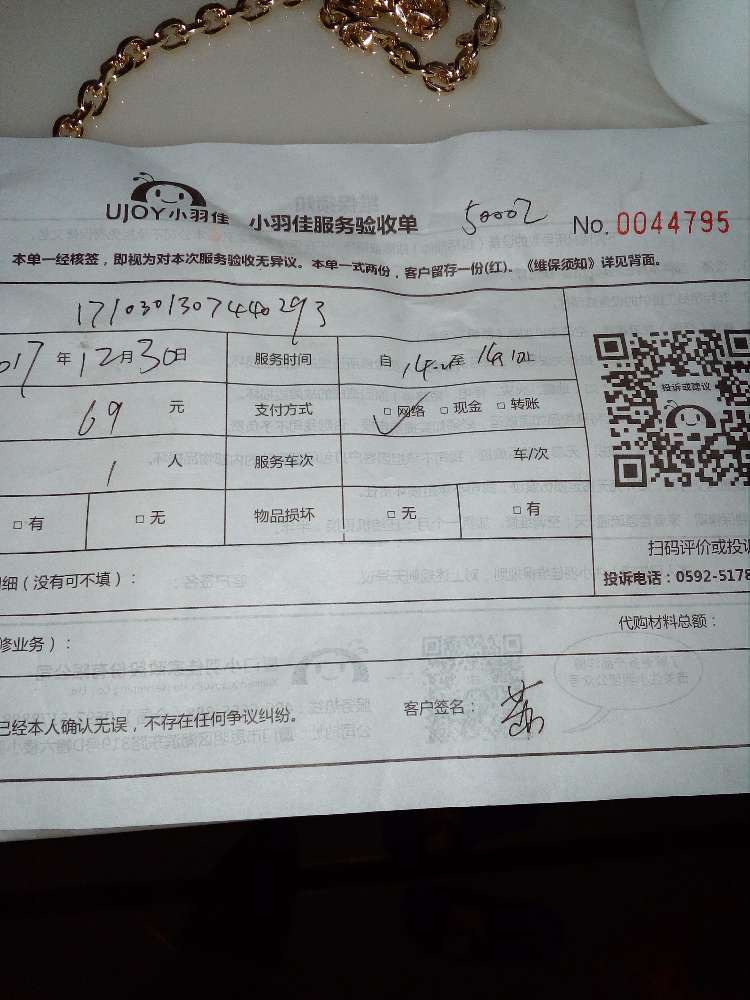 UJOY小羽佳 小羽佳服务验收单 50002 No. 0044795
本单一经核签，即视为对本次服务验收无异议。本单一式两份，客户留存一份(红)。《维保须知》详见背面。
017年12月30日 服务时间 自 至
69元 支付方式 □网络 □现金 □转账
投诉或建议
1人 服务车次 车/次
□有 □无 物品损坏 □无 □有
扫码评价或投诉
细（没有可不填）： 投诉电话：0592-5178
修业务）： 代购材料总额：
已经本人确认无误，不存在任何争议纠纷。 客户签名：